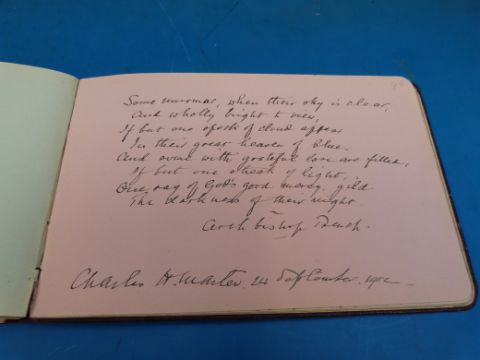 Some murmur, when their sky is clear,
And wholly bright to view,
If but one speck of cloud appear
In their great heaven of blue.
And some with grateful love are filled,
If but one streak of light,
One ray of God's good mercy gild
The darkness of their night
Archbishop Trench.
Charles H. Master. 24 September. 1902